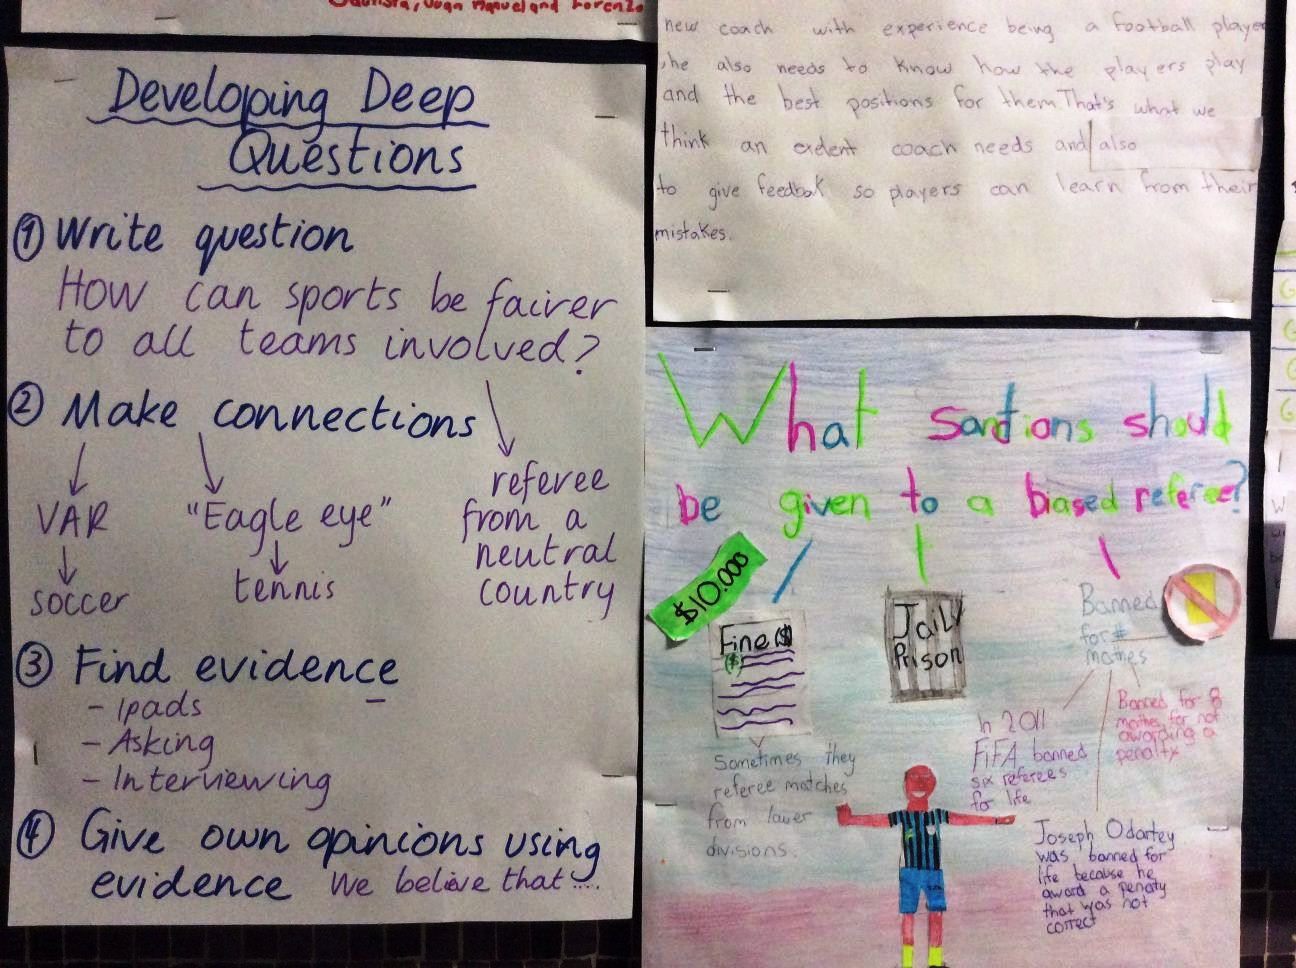 Bautista, Juan Manuel and Lorenzo
Developing Deep
Questions
① Write question
How can sports be fairer
to all teams involved?
② Make connections
VAR
soccer
"Eagle eye"
tennis
referee
from a
neutral
country
③ Find evidence
- Ipads
- Asking
- Interviewing
④ Give own opinions using
evidence We believe that .....
new coach with experience being a football player
, he also needs to know how the players play
and the best positions for them. That's what we
think an exelent coach needs and also
to give feedbak so players can learn from their
mistakes.
What sanctions should
be given to a biased referee?
$10.000
Fine ($)
Sometimes they
referee matches
from lower
divisions.
Jail/
Prison
Banned
for #
mathes
In 2011
FIFA banned
six referees
for life
Banned for 8
mathes for not
awarping a
penalty
Joseph Odartey
was banned for
life because he
award a penalty
that was not
correct